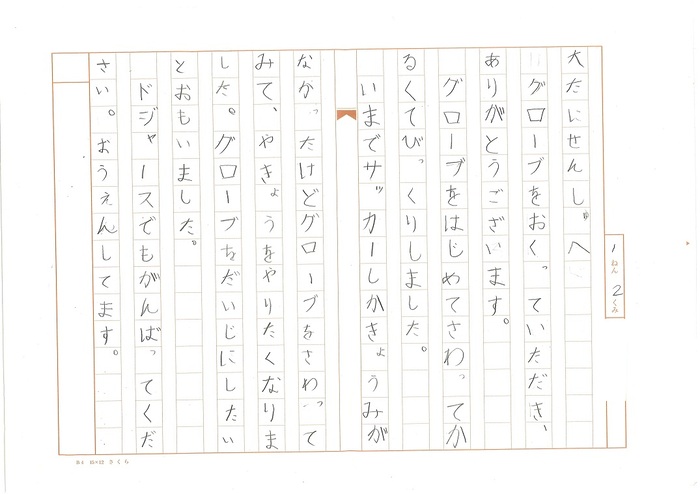 大たにせんしゅへ
グローブをおくっていただき、
ありがとうございます。
グローブをはじめてさわってか
るくてびっくりしました。
いままでサッカーしかきょうみが
なかったけどグローブをさわって
みて、やきょうをやりたくなりま
した。グローブをだいじにしたい
とおもいました。
ドジャースでもがんばってくだ
さい。おうえんしてます。
1ねん2くみ